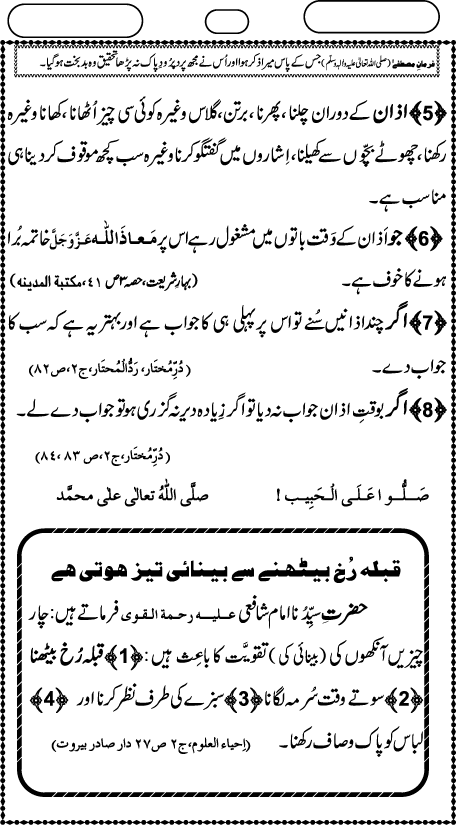 فرمانِ مصطفٰے (صلی اللہ تعالیٰ علیہ والہ وسلم) جس کے پاس میرا ذکر ہوا اور اُس نے مجھ پر دُرُودِ پاک نہ پڑھا تحقیق وہ بدبخت ہوگیا۔
﴿5﴾ اذان کے دوران چلنا، پھرنا، برتن، گلاس وغیرہ کوئی سی چیز اُٹھانا، کھانا وغیرہ
رکھنا، چھوٹے بچّوں سے کھیلنا، اِشاروں میں گفتگو کرنا وغیرہ سب کچھ موقوف کر دینا ہی
مناسب ہے۔
﴿6﴾ جو اَذان کے وَقت باتوں میں مشغول رہے اس پر مَعَاذَ اللّٰہ عَزَّوَجَلَّ خاتمہ بُرا
ہونے کا خوف ہے۔ (بہارِ شریعت، حصہ ۳ ص ۴۱، مکتبۃ المدینہ)
﴿7﴾ اگر چند اذانیں سُنے تو اس پر پہلی ہی کا جواب ہے اور بہتر یہ ہے کہ سب کا
جواب دے۔ (دُرِّمُختار، رَدُّالْمُحتار، ج۲، ص۸۲)
﴿8﴾ اگر بوقتِ اذان جواب نہ دیا تو اگر زِیادہ دیر نہ گزری ہو تو جواب دے لے۔
(دُرِّمُختار، ج۲، ص ۸۳، ۸۴)
صَلُّوا عَلَی الْحَبِیب! صلَّی اللّٰهُ تعالٰی علٰی محمَّد
قبلہ رُخ بیٹھنے سے بینائی تیز ہوتی ہے
حضرتِ سیِّدُنا امام شافعی علیہ رحمۃ القوی فرماتے ہیں: چار
چیزیں آنکھوں کی (بینائی کی) تقویَّت کا باعِث ہیں: ﴿1﴾ قبلہ رُخ بیٹھنا
﴿2﴾ سوتے وقت سُرمہ لگانا ﴿3﴾ سبزے کی طرف نظر کرنا اور ﴿4﴾
لباس کو پاک وصاف رکھنا۔ (اِحیاء العلوم، ج۲ ص ۲۷ دار صادر بیروت)